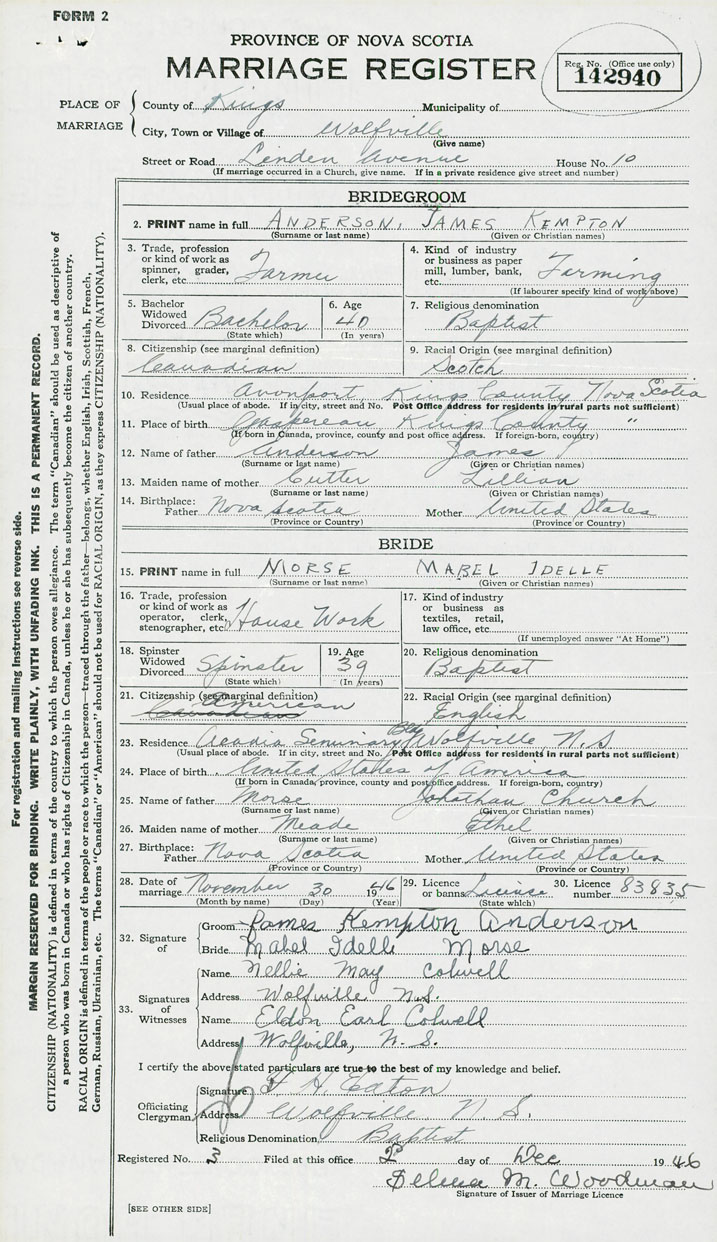 FORM 2
PROVINCE OF NOVA SCOTIA
MARRIAGE REGISTER
Reg. No. (Office use only)
142940
PLACE OF MARRIAGE
County of Kings Municipality of
City, Town or Village of Wolfville
(Give name)
Street or Road Linden Avenue House No. 10
(If marriage occurred in a Church, give name. If in a private residence give street and number)
BRIDEGROOM
2. PRINT name in full ANDERSON, JAMES KEMPTON
(Surname or last name) (Given or Christian names)
3. Trade, profession or kind of work as spinner, grader, clerk, etc. Farmer
4. Kind of industry or business as paper mill, lumber, bank, etc. Farming
(If labourer specify kind of work above)
5. Bachelor Widowed Divorced Bachelor
(State which)
6. Age 40
(In years)
7. Religious denomination
Baptist
8. Citizenship (see marginal definition)
Canadian
9. Racial Origin (see marginal definition)
Scotch
10. Residence Avonport, Kings County Nova Scotia
(Usual place of abode. If in city, street and No. Post Office address for residents in rural parts not sufficient)
11. Place of birth Gaspereau, Kings County "
(If born in Canada, province, county and post office address. If foreign-born, country)
12. Name of father Anderson James
(Surname or last name) (Given or Christian names)
13. Maiden name of mother Cutter Lillian
(Surname or last name) (Given or Christian names)
14. Birthplace: Father Nova Scotia Mother United States
(Province or Country) (Province or Country)
BRIDE
15. PRINT name in full MORSE MABEL IDELLE
(Surname or last name) (Given or Christian names)
16. Trade, profession or kind of work as operator, clerk, stenographer, etc. House Work
17. Kind of industry or business as textiles, retail, law office, etc.
(If unemployed answer "At Home")
18. Spinster Widowed Divorced Spinster
(State which)
19. Age 39
(In years)
20. Religious denomination
Baptist
21. Citizenship (see marginal definition)
American
Canadian
22. Racial Origin (see marginal definition)
English
23. Residence Acadia Seminary Bldg Wolfville N.S
(Usual place of abode. If in city, street and No. Post Office address for residents in rural parts not sufficient)
24. Place of birth United States of America
(If born in Canada, province, county and post office address. If foreign-born, country)
25. Name of father Morse Jonathan Church
(Surname or last name) (Given or Christian names)
26. Maiden name of mother Meade Ethel
(Surname or last name) (Given or Christian names)
27. Birthplace: Father Nova Scotia Mother United States
(Province or Country) (Province or Country)
28. Date of marriage November 30 1946
(Month by name) (Day) (Year)
29. Licence or banns License
(State which)
30. Licence number 83835
32. Signature of
Groom James Kempton Anderson
Bride Mabel Idelle Morse
33. Signatures of Witnesses
Name Nellie May Colwell
Address Wolfville N.S.
Name Eldon Earl Colwell
Address Wolfville, N.S.
I certify the above stated particulars are true to the best of my knowledge and belief.
Officiating Clergyman
Signature H. Eaton
Address Wolfville, N.S.
Religious Denomination Baptist
Registered No. 3 Filed at this office 2 day of Dec 1946
M. Woodman
Signature of Issuer of Marriage Licence
[SEE OTHER SIDE]
For registration and mailing instructions see reverse side.
MARGIN RESERVED FOR BINDING. WRITE PLAINLY, WITH UNFADING INK. THIS IS A PERMANENT RECORD.
CITIZENSHIP (NATIONALITY) is defined in terms of the country to which the person owes allegiance. The term "Canadian" should be used as descriptive of
a person who was born in Canada or who has rights of Citizenship in Canada, unless he or she has subsequently become the citizen of another country.
RACIAL ORIGIN is defined in terms of the people or race to which the person—traced through the father—belongs, whether English, Irish, Scottish, French,
German, Russian, Ukrainian, etc. The terms "Canadian" or "American" should not be used for RACIAL ORIGIN, as they express CITIZENSHIP (NATIONALITY).